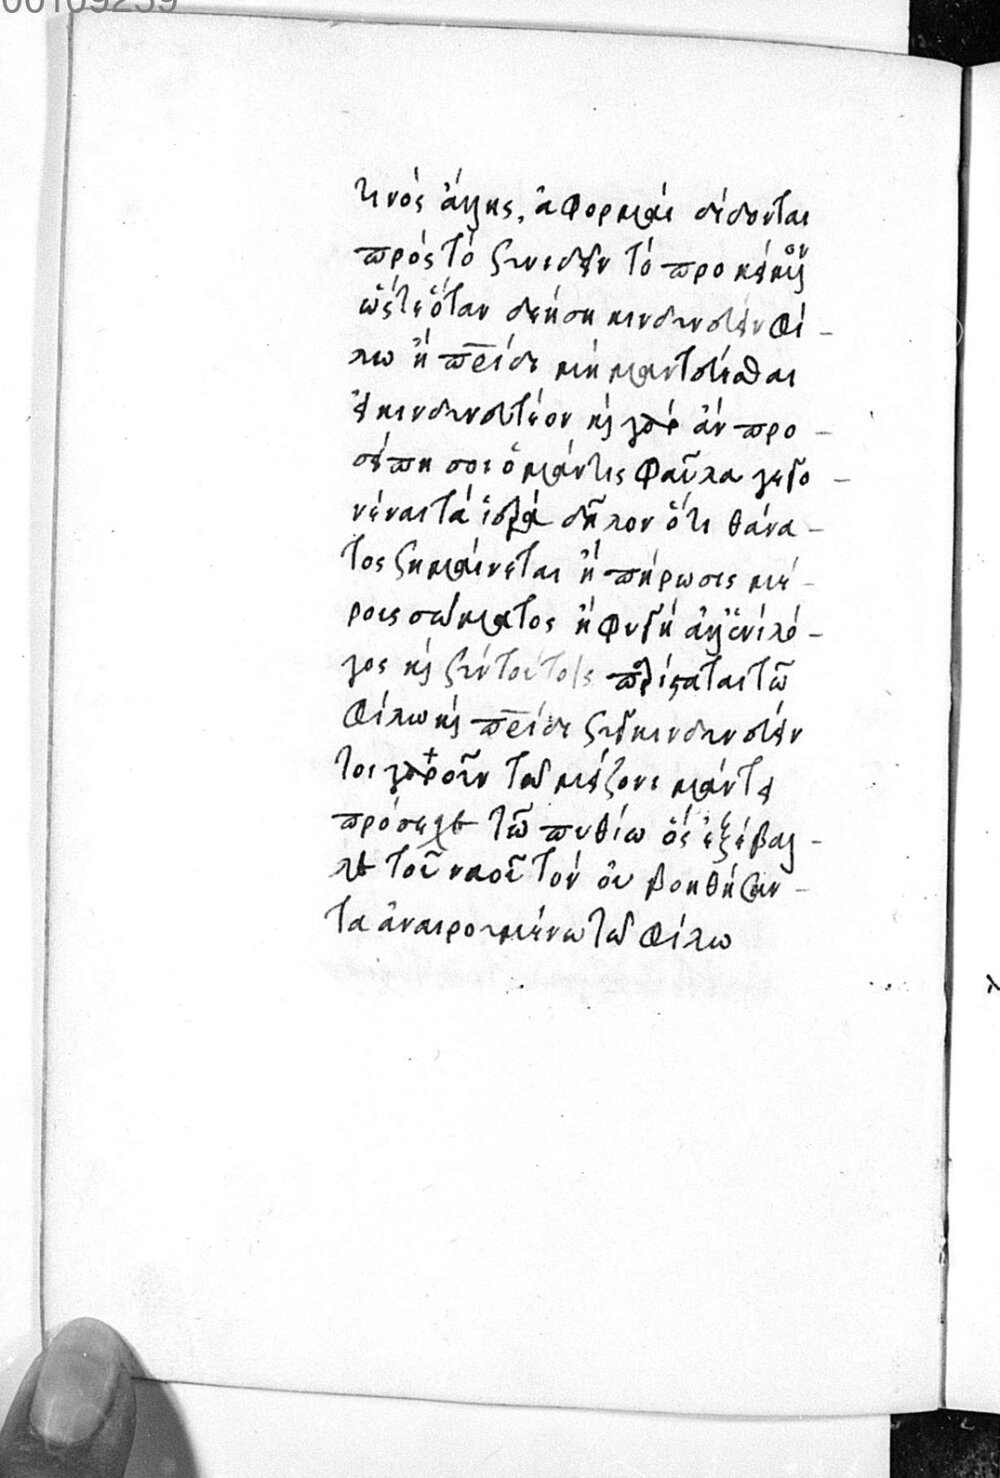 00109259
τινὸς ἄλλης, ἀφορμαὶ δίδονται
πρὸς τὸ συνιδεῖν τὸ προκείμενον
ὥστε ὅταν δεήσῃ κινδυνεύειν φί-
λω ἢ πατρίδι μὴ μαντεύεσθαι
εἰ κινδυνευτέον καὶ γὰρ ἂν προ-
είπη σοι ὁ μάντις φαῦλα γεγο-
νέναι τὰ ἱερὰ δῆλον ὅτι θάνα-
τος σημαίνεται ἢ πήρωσις μέ-
ροις σώματος ἢ φυγὴ ἀλλ' ἐνὶ λό-
γος καὶ σὺν τούτοις παρίσταται τῶ
φίλω καὶ πατρίδι συγκινδυνεύειν
τοι γὰρ οῦν τῶ μείζονι μάντει
πρόσεχε τῶ πυθίω ὃς ἐξέβαλ-
λε τοῦ ναοῦ τὸν οὐ βοηθήσαν-
τα ἀναιρουμένω τῶ φίλω